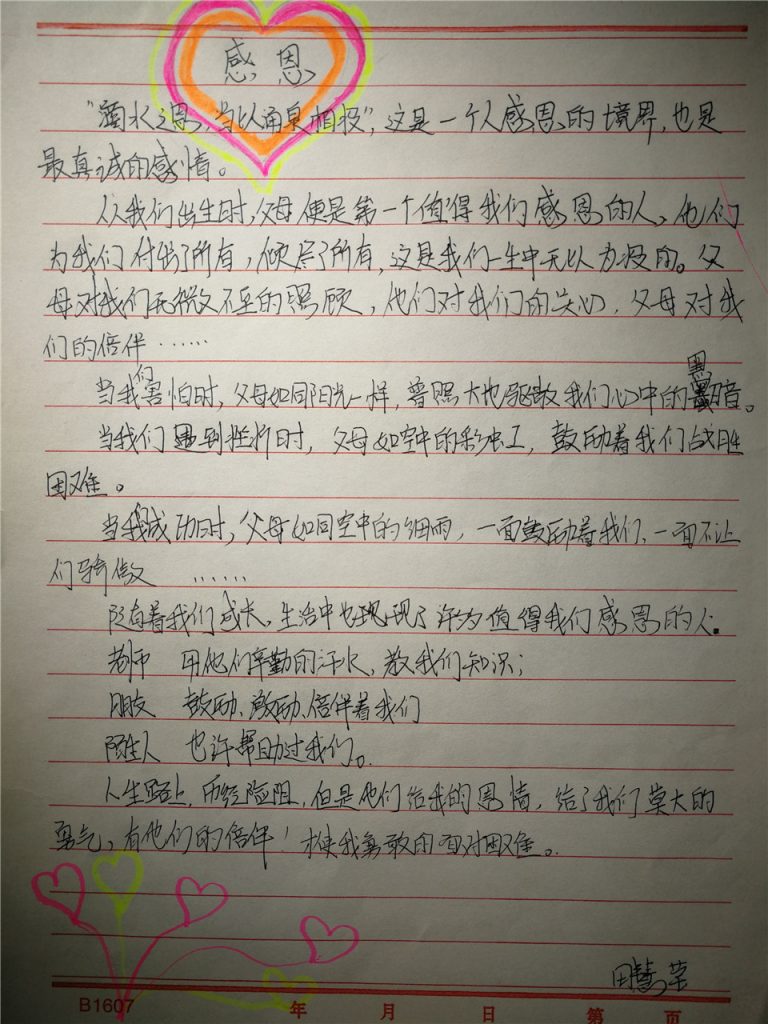 感恩
"滴水之恩，当以涌泉相报"，这是一个人感恩的境界，也是
最真诚的感情。
从我们出生时，父母便是第一个值得我们感恩的人，他们
为我们付出了所有，倾尽了所有，这是我们一生中无以为报的。父
母对我们无微不至的照顾，他们对我们的关心，父母对我
们的倍伴……
当我们害怕时，父母如同阳光一样，普照大地驱散我们心中的黑暗。
当我们遇到挫折时，父母如空中的彩虹，鼓励着我们战胜
困难。
当我们成功时，父母如同空中的细雨，一面鼓励着我们，一面不让
们骄傲……
随着我们成长，生活中也现了许为值得我们感恩的人.
老师 用他们辛勤的汗水，教我们知识；
朋友 鼓励、激励、倍伴着我们
陌生人 也许帮助过我们。
人生路上，历经险阻，但是他们给我的恩情，给了我们莫大的
勇气，有他们的倍伴！才使我勇敢的面对困难。
田慧荣
B1607 年 月 日 第 页